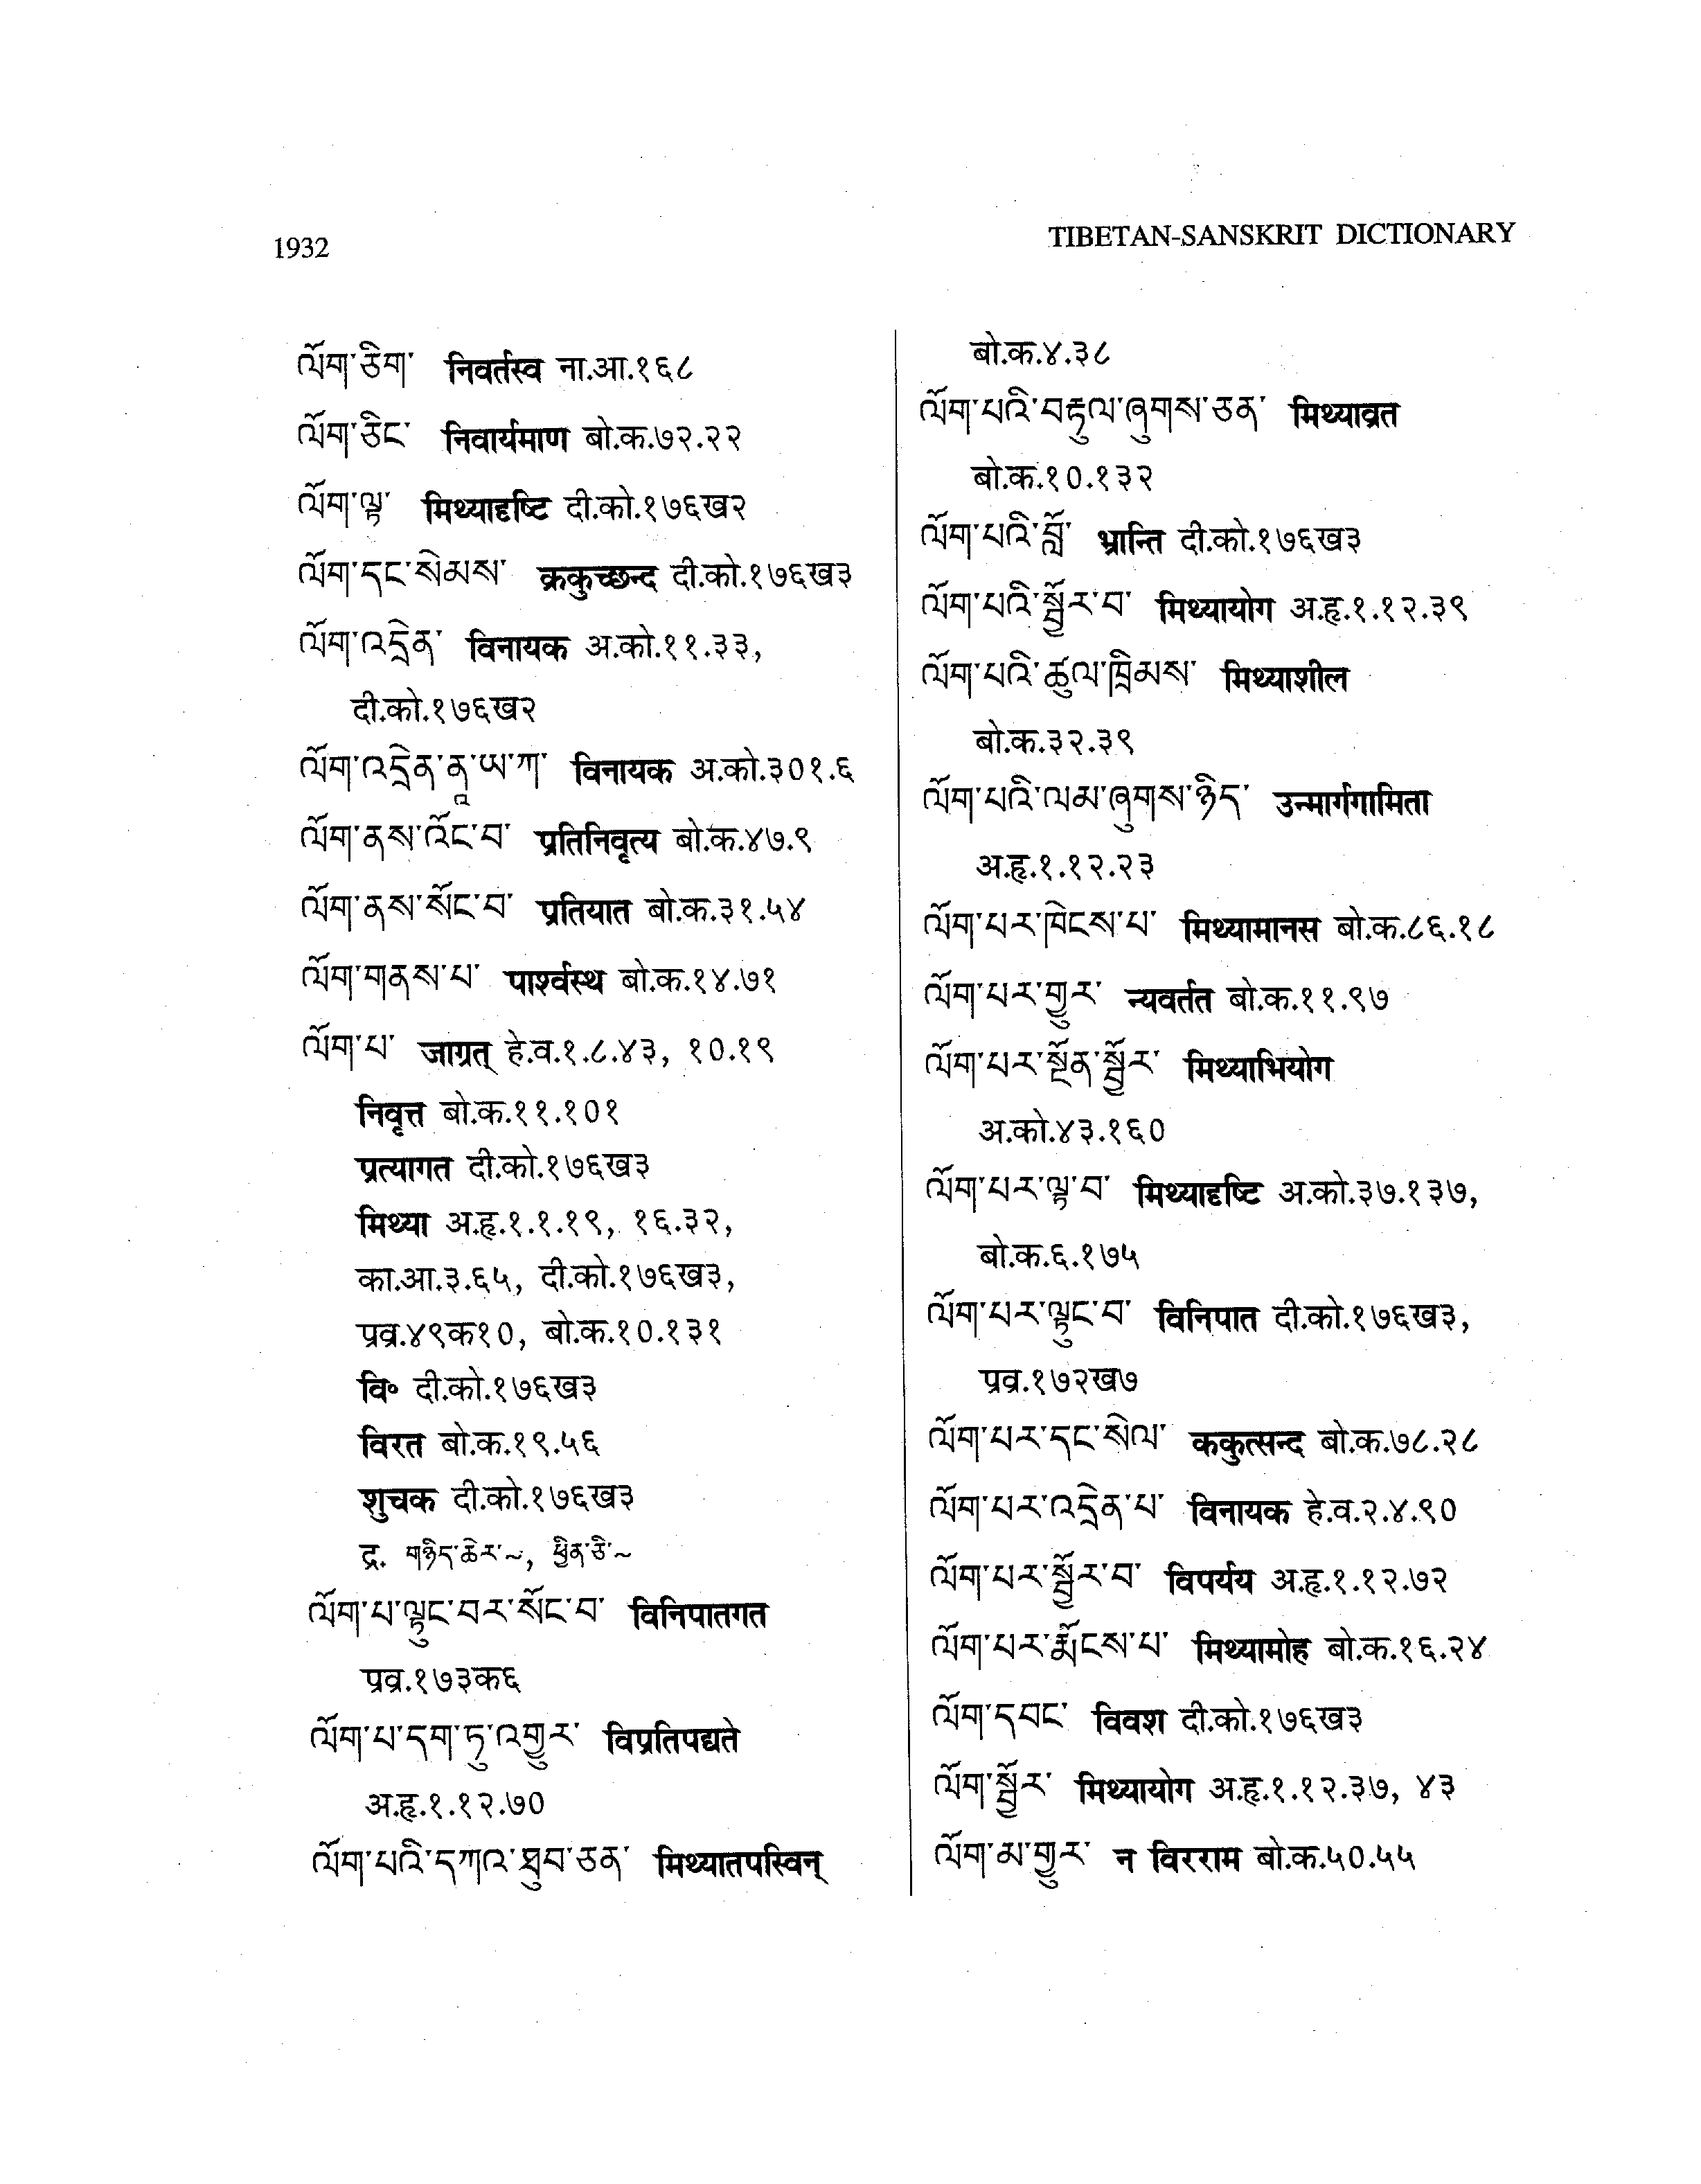 1932
TIBETAN-SANSKRIT DICTIONARY
ལོག་ཅིག་ निवर्तस्व ना.आ.१६८
ལོག་ཅིང་ निवार्यमाण बो.क.७२.२२
ལོག་ལྟ་ मिथ्यादृष्टि दी.को.१७६ख२
ལོག་དང་སེམས་ क्रकुच्छन्द दी.को.१७६ख३
ལོག་འདྲེན་ विनायक अ.को.११.३३,
दी.को.१७६ख२
ལོག་འདྲེན་ནཱ་ཡ་ཀ་ विनायक अ.को.३०१.६
ལོག་ནས་འོང་བ་ प्रतिनिवृत्य बो.क.४७.९
ལོག་ནས་སོང་བ་ प्रतियात बो.क.३१.५४
ལོག་གནས་པ་ पार्श्वस्थ बो.क.१४.७१
ལོག་པ་ जाग्रत् हे.व.१.८.४३, १०.१९
निवृत्त बो.क.११.१०१
प्रत्यागत दी.को.१७६ख३
मिथ्या अ.हृ.१.१.१९, १६.३२,
का.आ.३.६५, दी.को.१७६ख३,
प्रव्र.४९क१०, बो.क.१०.१३१
वि॰ दी.को.१७६ख३
विरत बो.क.१९.५६
शुचक दी.को.१७६ख३
द्र. གཉིད་ཆེར་~, ཕྱིན་ཅི་~
ལོག་པ་ལྟུང་བར་སོང་བ་ विनिपातगत
प्रव्र.१७३क६
ལོག་པ་དག་ཏུ་འགྱུར་ विप्रतिपद्यते
अ.हृ.१.१२.७०
ལོག་པའི་དཀའ་ཐུབ་ཅན་ मिथ्यातपस्विन्
बो.क.४.३८
ལོག་པའི་བརྟུལ་ཞུགས་ཅན་ मिथ्याव्रत
बो.क.१०.१३२
ལོག་པའི་བློ་ भ्रान्ति दी.को.१७६ख३
ལོག་པའི་སྦྱོར་བ་ मिथ्यायोग अ.हृ.१.१२.३९
ལོག་པའི་ཚུལ་ཁྲིམས་ मिथ्याशील
बो.क.३२.३९
ལོག་པའི་ལམ་ཞུགས་ཉིད་ उन्मार्गगामिता
अ.हृ.१.१२.२३
ལོག་པར་ཁེངས་པ་ मिथ्यामानस बो.क.८६.१८
ལོག་པར་གྱུར་ न्यवर्तत बो.क.११.९७
ལོག་པར་སྔོན་སྦྱོར་ मिथ्याभियोग
अ.को.४३.१६०
ལོག་པར་ལྟ་བ་ मिथ्यादृष्टि अ.को.३७.१३७,
बो.क.६.१७५
ལོག་པར་ལྟུང་བ་ विनिपात दी.को.१७६ख३,
प्रव्र.१७२ख७
ལོག་པར་དང་སེལ་ ककुत्सन्द बो.क.७८.२८
ལོག་པར་འདྲེན་པ་ विनायक हे.व.२.४.९०
ལོག་པར་སྦྱོར་བ་ विपर्यय अ.हृ.१.१२.७२
ལོག་པར་རྨོངས་པ་ मिथ्यामोह बो.क.१६.२४
ལོག་དབང་ विवश दी.को.१७६ख३
ལོག་སྦྱོར་ मिथ्यायोग अ.हृ.१.१२.३७, ४३
ལོག་མ་གྱུར་ न विरराम बो.क.५०.५५